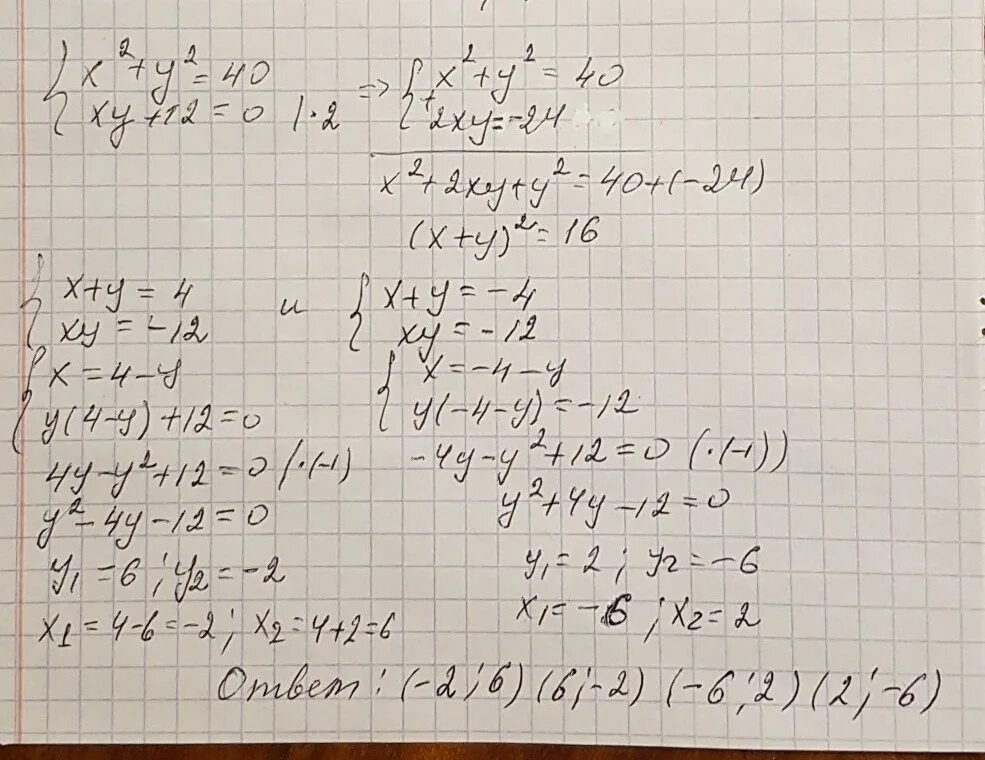 { x² + y² = 40
xy + 12 = 0 | · 2
=> { x² + y² = 40
+ 2xy = -24
x² + 2xy + y² = 40 + (-24)
(x + y)² = 16
{ x + y = 4
xy = -12
и
{ x + y = -4
xy = -12
{ x = 4 - y
y(4 - y) + 12 = 0
4y - y² + 12 = 0 | · (-1)
y² - 4y - 12 = 0
y₁ = 6 ; y₂ = -2
x₁ = 4 - 6 = -2 ; x₂ = 4 + 2 = 6
{ x = -4 - y
y(-4 - y) = -12
-4y - y² + 12 = 0 (· (-1))
y² + 4y - 12 = 0
y₁ = 2 ; y₂ = -6
x₁ = -6 ; x₂ = 2
Ответ : (-2 ; 6) (6 ; -2) (-6 ; 2) (2 ; -6)